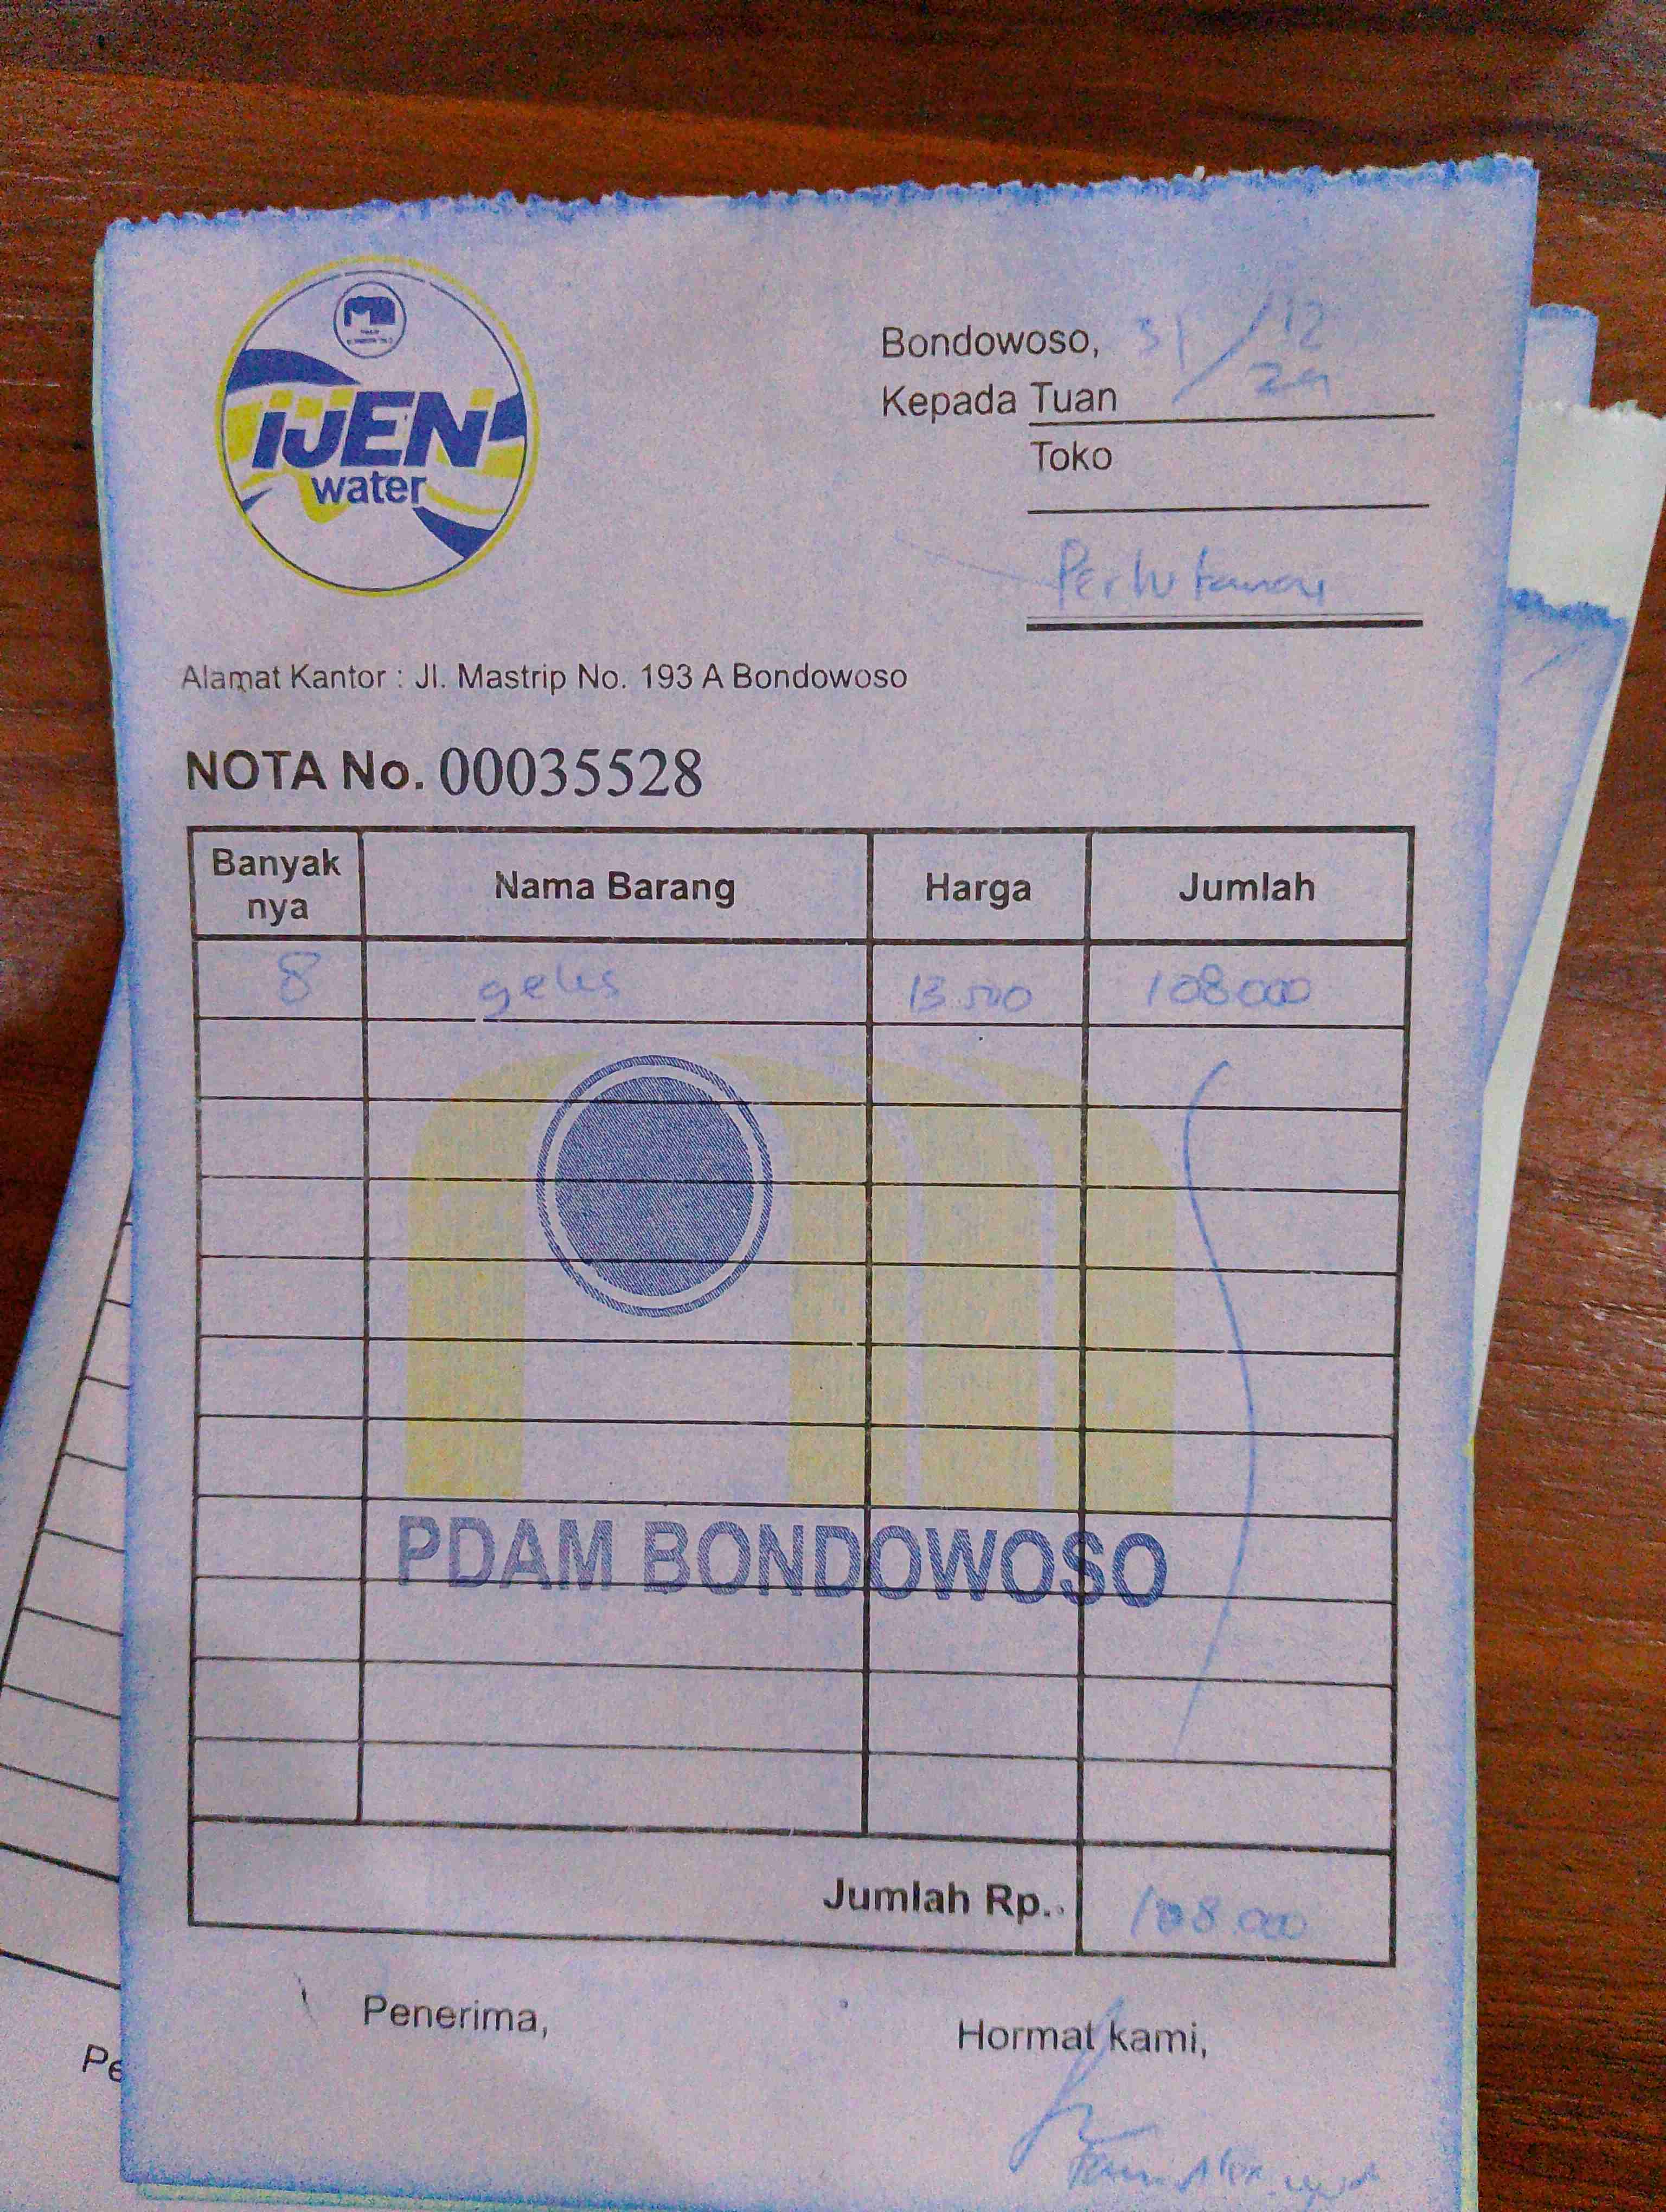 IJEN
water
Bondowoso, 31/12
24
Kepada Tuan
Toko
Perhutanan
Alamat Kantor : Jl. Mastrip No. 193 A Bondowoso
NOTA No. 00035528
Banyak nya Nama Barang Harga Jumlah
8 gelas 13.500 108.000
PDAM BONDOWOSO
Jumlah Rp.. 108.000
Penerima,
Hormat kami,
Pe